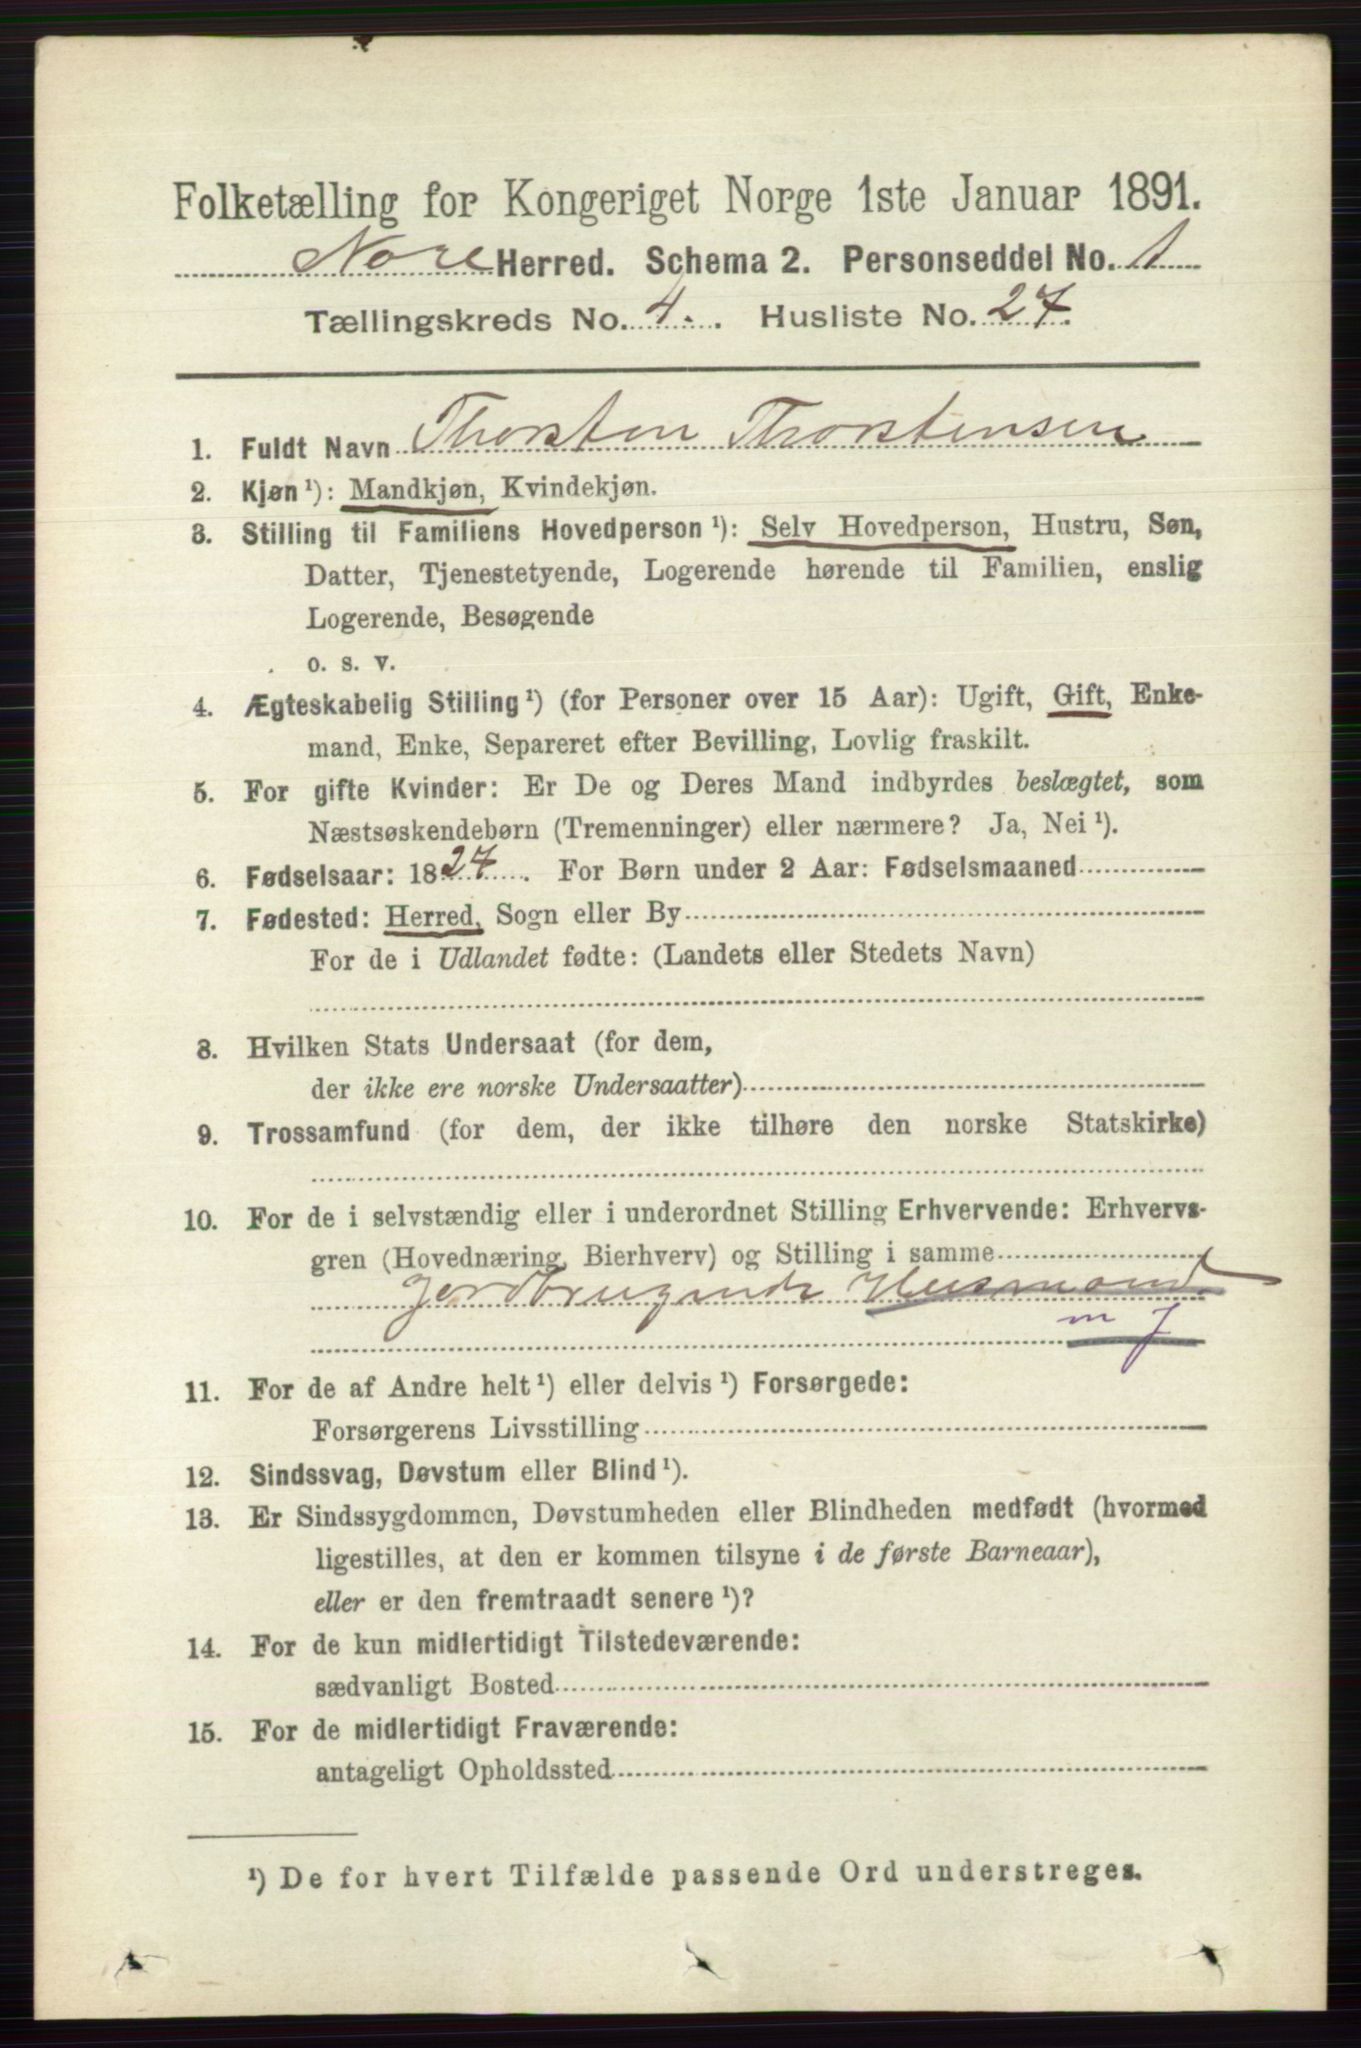 Folketælling for Kongeriget Norge 1ste Januar 1891.
Nore Herred. Schema 2. Personseddel No. 1
Tællingskreds No. 4. . Husliste No. 27.
1. Fuldt Navn Thorsten Thorstensen
2. Kjøn ¹): Mandkjøn, Kvindekjøn.
3. Stilling til Familiens Hovedperson ¹): Selv Hovedperson, Hustru, Søn,
Datter, Tjenestetyende, Logerende hørende til Familien, enslig
Logerende, Besøgende
o. s. v.
4. Ægteskabelig Stilling ¹) (for Personer over 15 Aar): Ugift, Gift, Enke-
mand, Enke, Separeret efter Bevilling, Lovlig fraskilt.
5. For gifte Kvinder: Er De og Deres Mand indbyrdes beslægtet, som
Næstsøskendebørn (Tremenninger) eller nærmere? Ja, Nei ¹).
6. Fødselsaar: 1827. For Børn under 2 Aar: Fødselsmaaned
7. Fødested: Herred, Sogn eller By
For de i Udlandet fødte: (Landets eller Stedets Navn)
8. Hvilken Stats Undersaat (for dem,
der ikke ere norske Undersaatter)
9. Trossamfund (for dem, der ikke tilhøre den norske Statskirke)
10. For de i selvstændig eller i underordnet Stilling Erhvervende: Erhvervs-
gren (Hovednæring, Bierhverv) og Stilling i samme
Jordbrugende Husmand.
m J
11. For de af Andre helt ¹) eller delvis ¹) Forsørgede:
Forsørgerens Livsstilling
12. Sindssvag, Døvstum eller Blind ¹).
13. Er Sindssygdommen, Døvstumheden eller Blindheden medfødt (hvormed
ligestilles, at den er kommen tilsyne i de første Barneaar),
eller er den fremtraadt senere ¹)?
14. For de kun midlertidigt Tilstedeværende:
sædvanligt Bosted
15. For de midlertidigt Fraværende:
antageligt Opholdssted
¹) De for hvert Tilfælde passende Ord understreges.